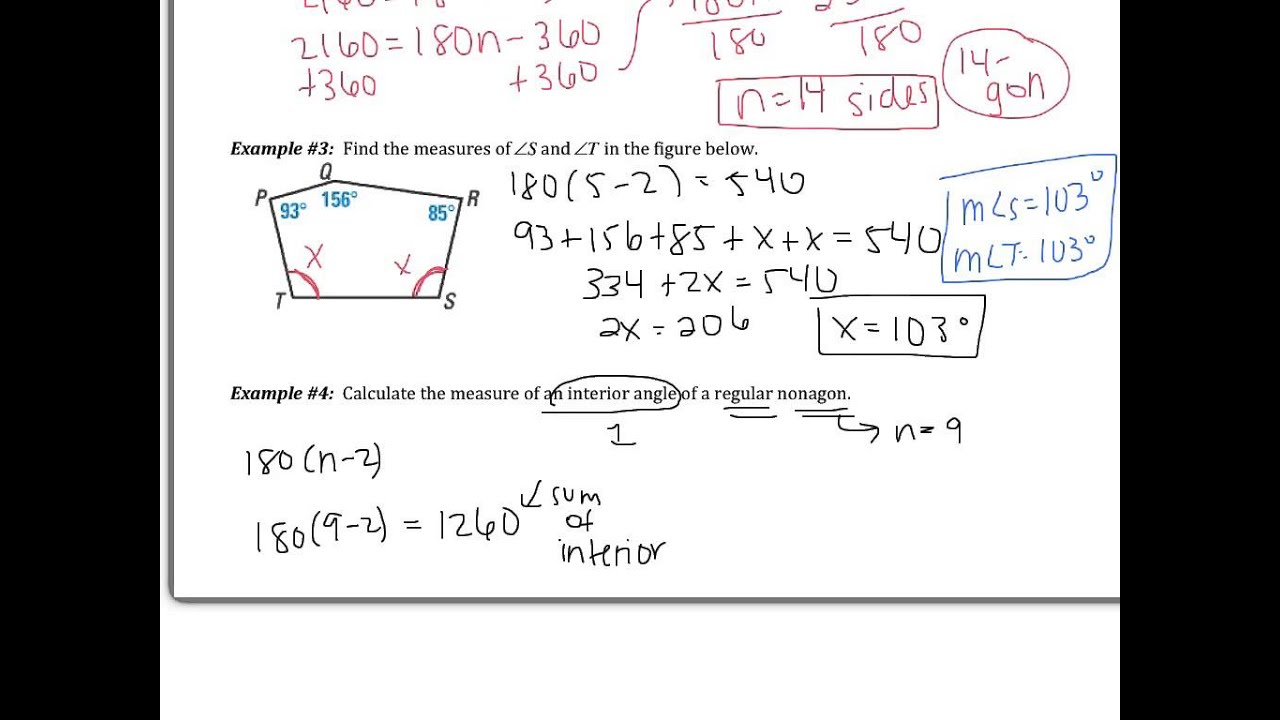 2160 = 180n - 360
+360 +360
180 180
n = 14 sides
14-gon
Example #3: Find the measures of ∠S and ∠T in the figure below.
P Q R S T
93° 156° 85°
X X
180(5-2) = 540
93+156+85+x+x = 540
334 + 2x = 540
2x = 206
x = 103°
m∠S = 103°
m∠T = 103°
Example #4: Calculate the measure of an interior angle of a regular nonagon.
1
n = 9
180(n-2)
180(9-2) = 1260
sum
of
interior